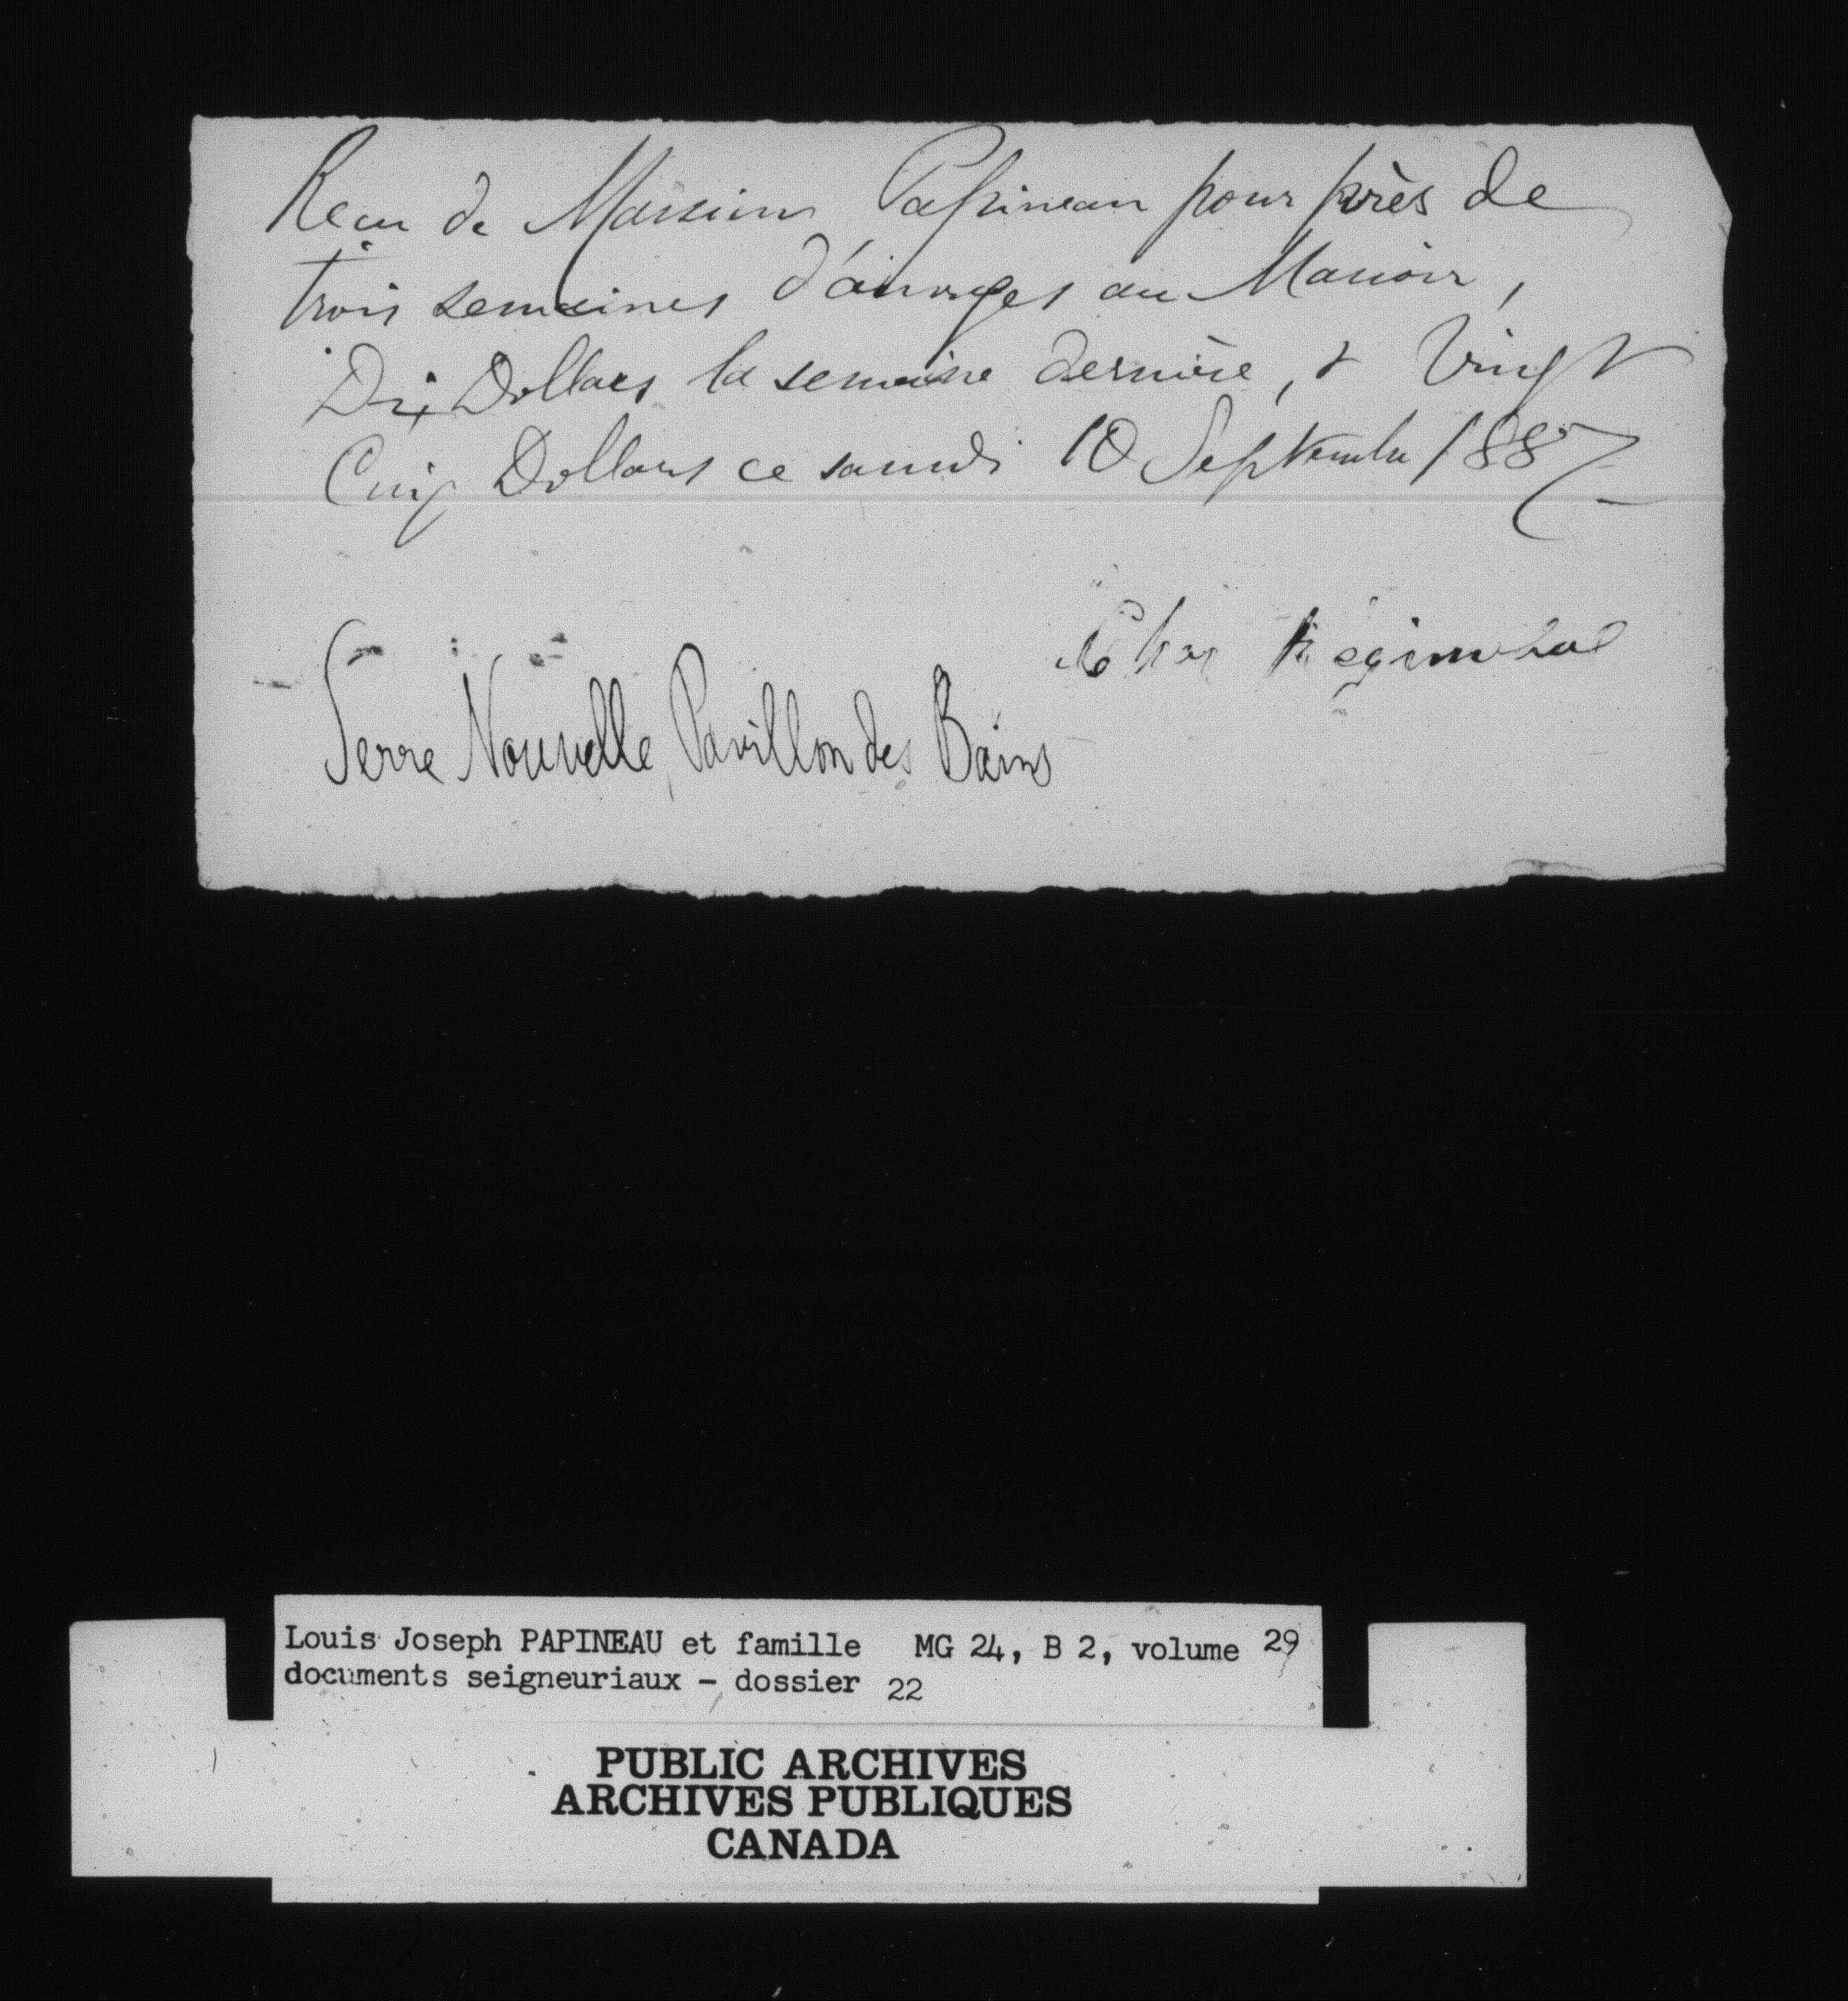 Recu de Monsieur Papineau pour près de
trois semaines d'ouvrages au Manoir,
Dix Dollars la semaine dernière, & Vingt
Cinq Dollars ce samedi 10 Septembre 1887
Chas Regimbal
Serre Nouvelle, Pavillon des Bains
Louis Joseph PAPINEAU et famille MG 24, B 2, volume 29
documents seigneuriaux - dossier 22
PUBLIC ARCHIVES
ARCHIVES PUBLIQUES
CANADA